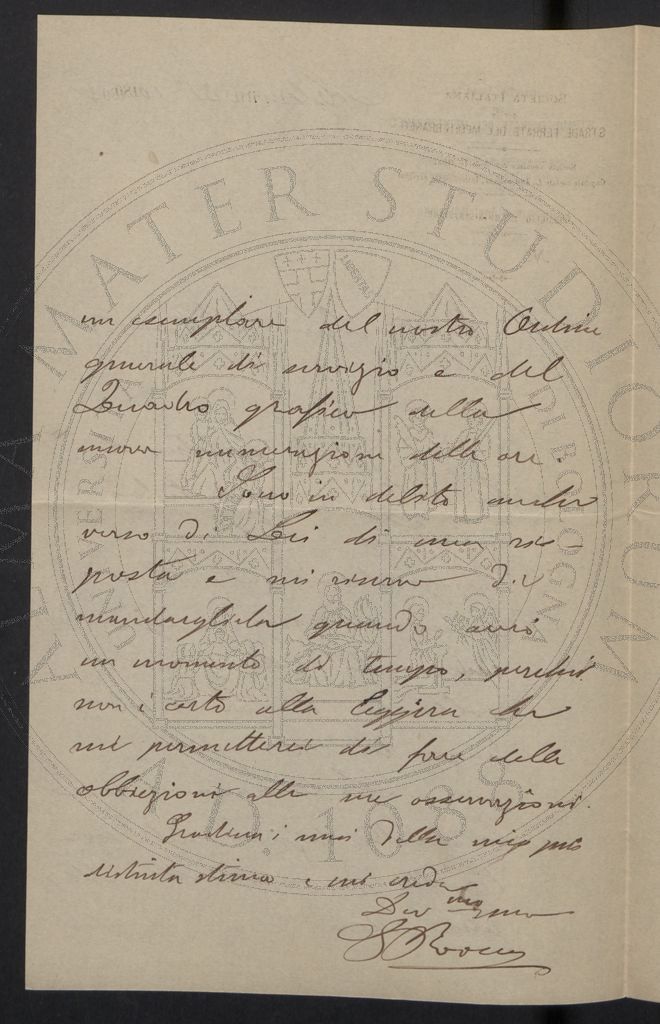 ALMA MATER STUDIORUM
UNIVERSITÀ DI BOLOGNA
A.D. 1088
LIBERTAS
SOCIETÀ ITALIANA
STRADE FERRATE DEL MEDITERRANEO
un esemplare del nostro Ordine
generale di servizio e del
Quadro grafico della
nuova numerazione delle ore.
Sono in debito anche
verso di Lei di una ris-
posta e mi riservo di
mandargliela quando avrò
un momento di tempo, perchè
non è certo alla leggiera che
mi permetterei di fare delle
obbiezioni alle sue osservazioni.
Gradisca i sensi della mia più
distinta stima e mi creda
Dev mo suo